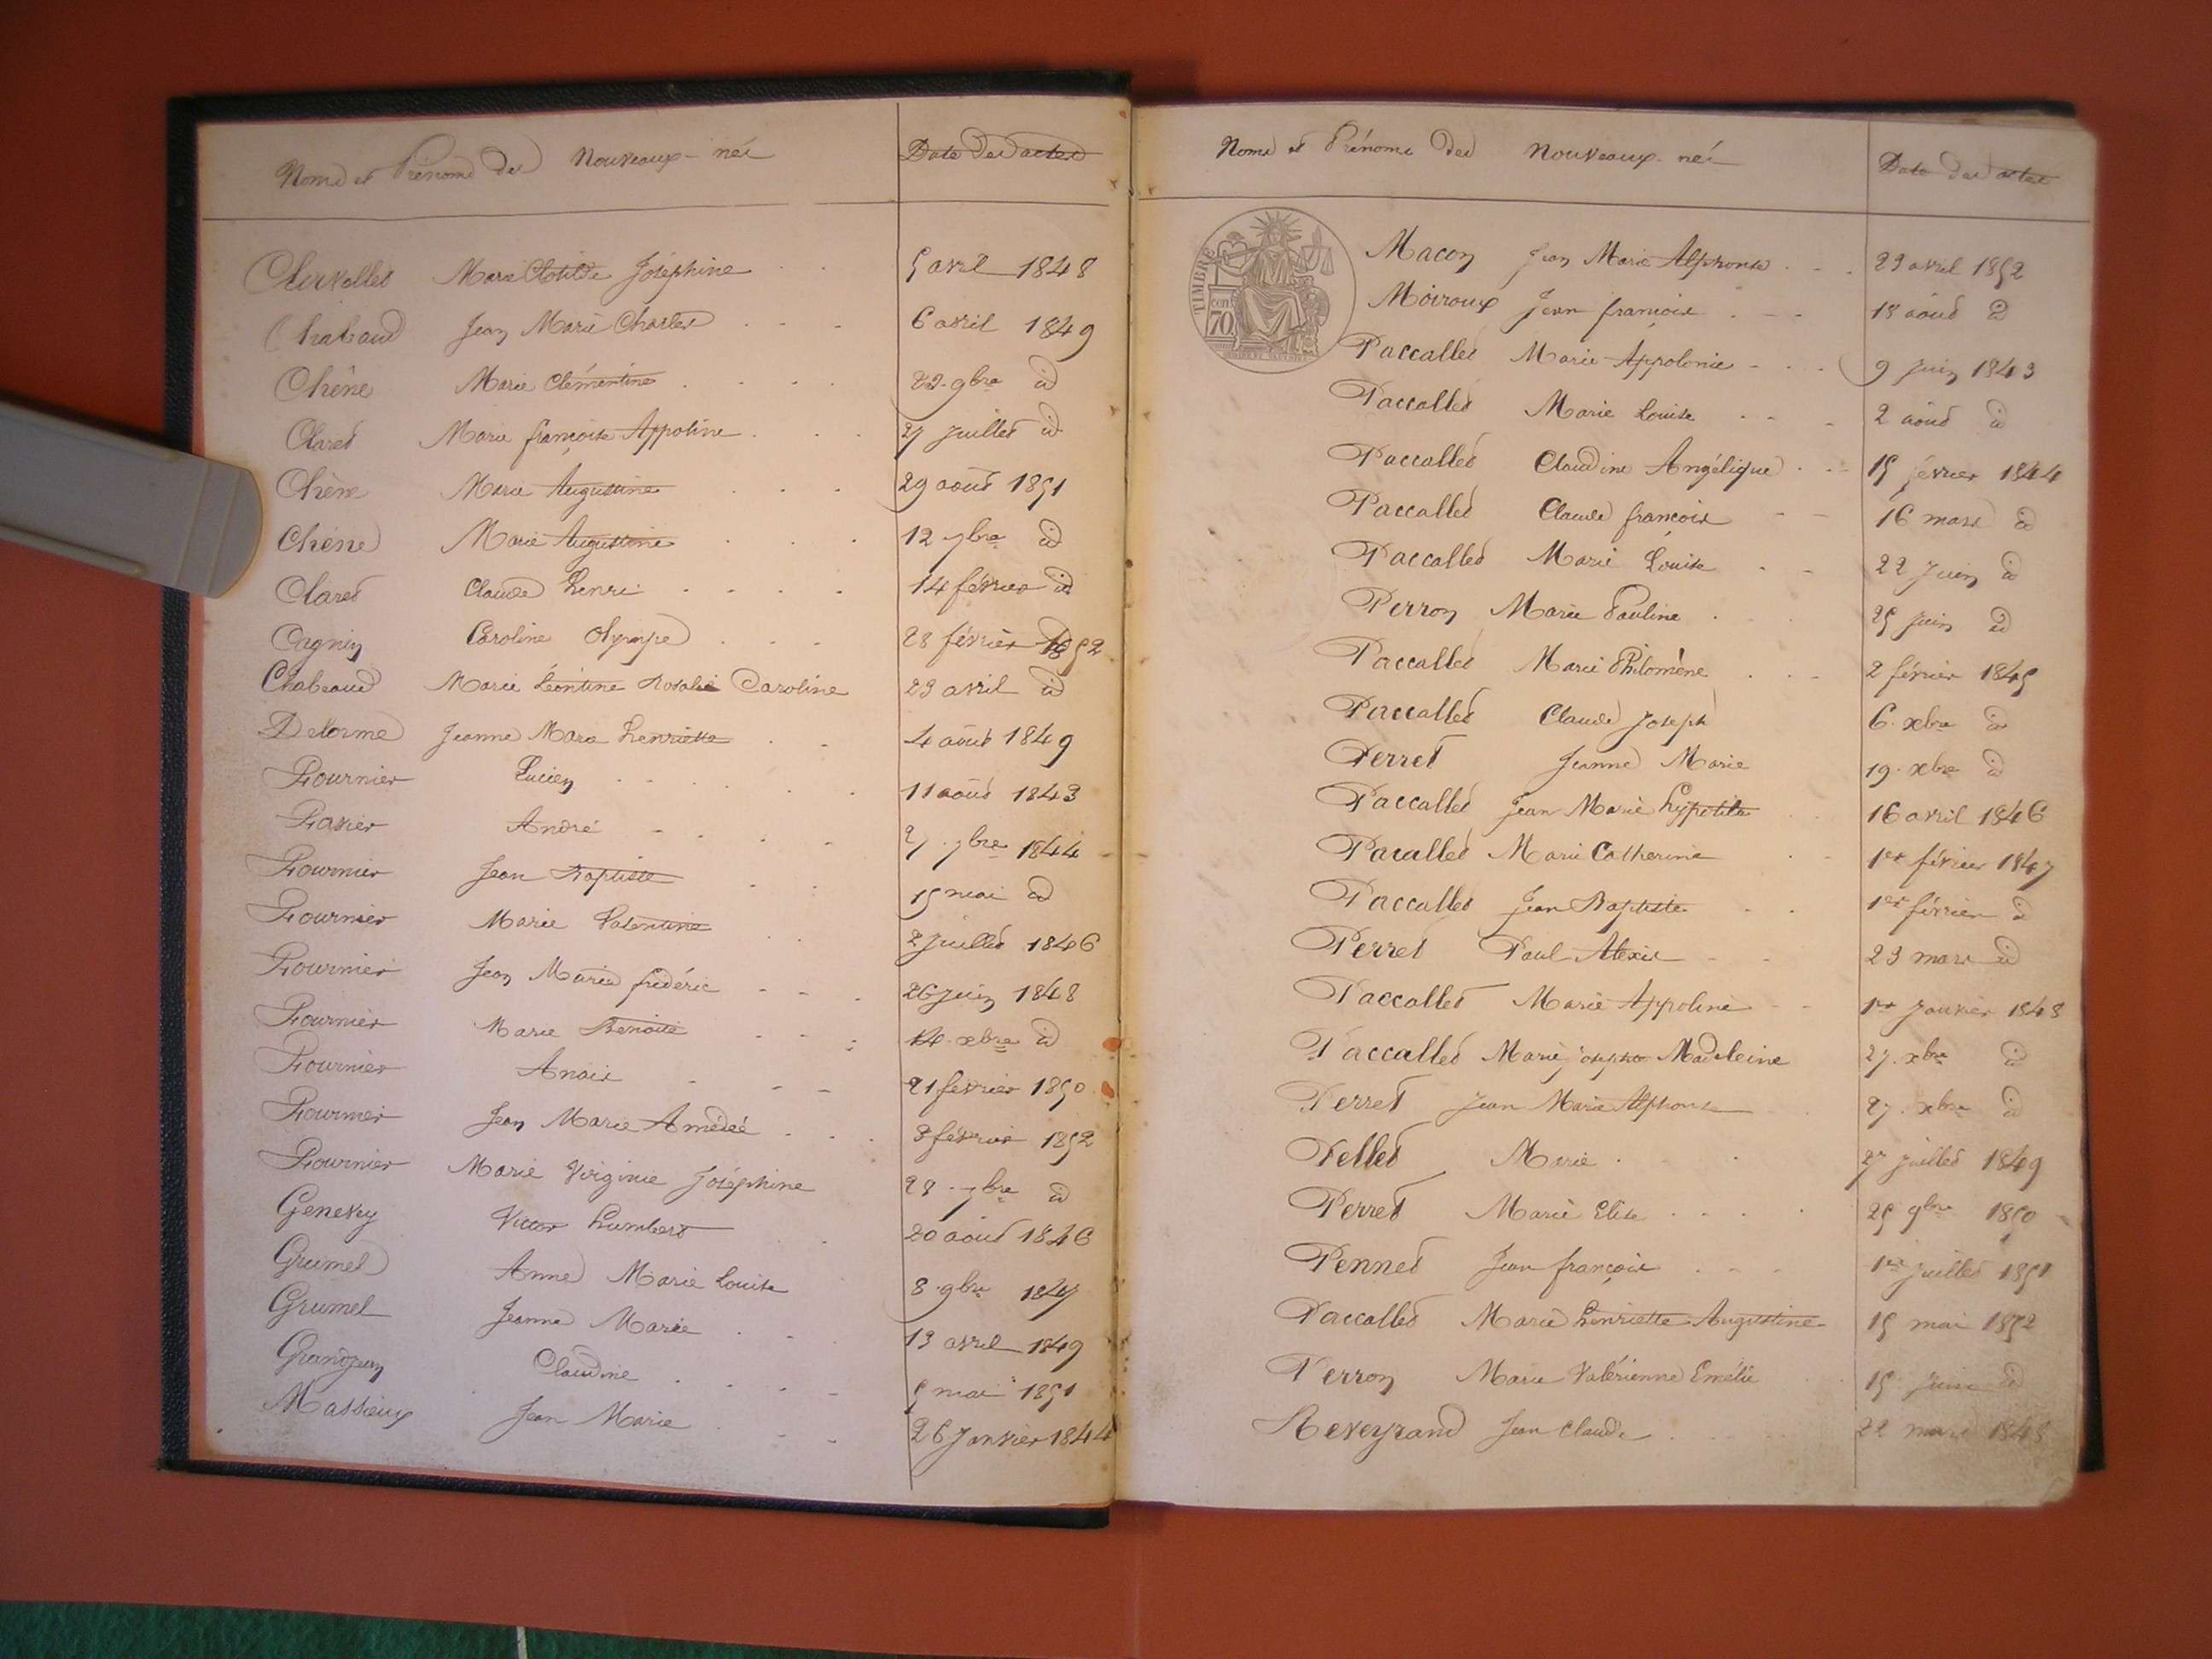 Noms et Prénoms des Nouveaux-nés Date des actes
Chervallet Marie Clotilde Joséphine 5 avril 1848
Chabaud Jean Marie Charles 6 avril 1849
Chêne Marie Clémentine 22 9bre id
Claret Marie françoise Appoline 27 Juillet id
Chêne Marie Augustine 29 août 1851
Chêne Marie Augustine 12 7bre id
Claret Claude henri 14 février id
Cagnin Caroline Olympe 28 février 1852
Chabeaud Marie Léontine Rosalie Caroline 23 avril id
Delorme Jeanne Marie henriette 4 août 1849
Fournier Lucien 11 août 1843
Favier André 27 7bre 1844
Fournier Jean Baptiste 15 mai id
Fournier Marie Valentine 2 Juillet 1846
Fournier Jean Marie frédéric 26 Juin 1848
Fournier Marie Benoite 14 xbre id
Fournier Anais 21 février 1850
Fournier Jean Marie Amédée 8 février 1852
Fournier Marie Virginie Joséphine 28 7bre id
Genevey Victor humbert 20 août 1846
Grumel Anne Marie Louise 8 9bre 1847
Grumel Jeanne Marie 13 avril 1849
Grandjean Claudine 5 mai 1851
Massieux Jean Marie 26 Janvier 1844
Noms et Prénoms des nouveaux-nés Date des actes
TIMBRE
70
Macon Jean Marie Alphonse 29 avril 1852
Moiroux Jean françois 18 août id
Paccallet Marie Appolonie 9 Juin 1843
Paccallet Marie Louise 2 août id
Paccallet Claudine Angélique 15 février 1844
Paccallet Claude françois 16 mars id
Paccallet Marie Louise 22 Juin id
Perron Marie Pauline 25 Juin id
Paccallet Marie Philomène 2 février 1845
Paccallet Claude Joseph 6 xbre id
Perret Jeanne Marie 19 xbre id
Paccallet Jean Marie hypolite 16 avril 1846
Pacallet Marie Catherine 1er février 1847
Paccallet Jean Baptiste 1er février id
Perret Paul Alexis 23 mars id
Paccallet Marie Appoline 1er Janvier 1848
Paccallet Marie josephe Madeleine 27 xbre id
Perret Jean Marie Alphonse 27 xbre id
Pellet Marie 27 Juillet 1849
Perret Marie Elise 25 9bre 1850
Pennet Jean françois 1er Juillet 1851
Paccallet Marie henriette Augustine 15 mai 1852
Perron Marie Valérienne Emélie 15 Juin id
Reveyrand Jean Claude 22 mars 1848